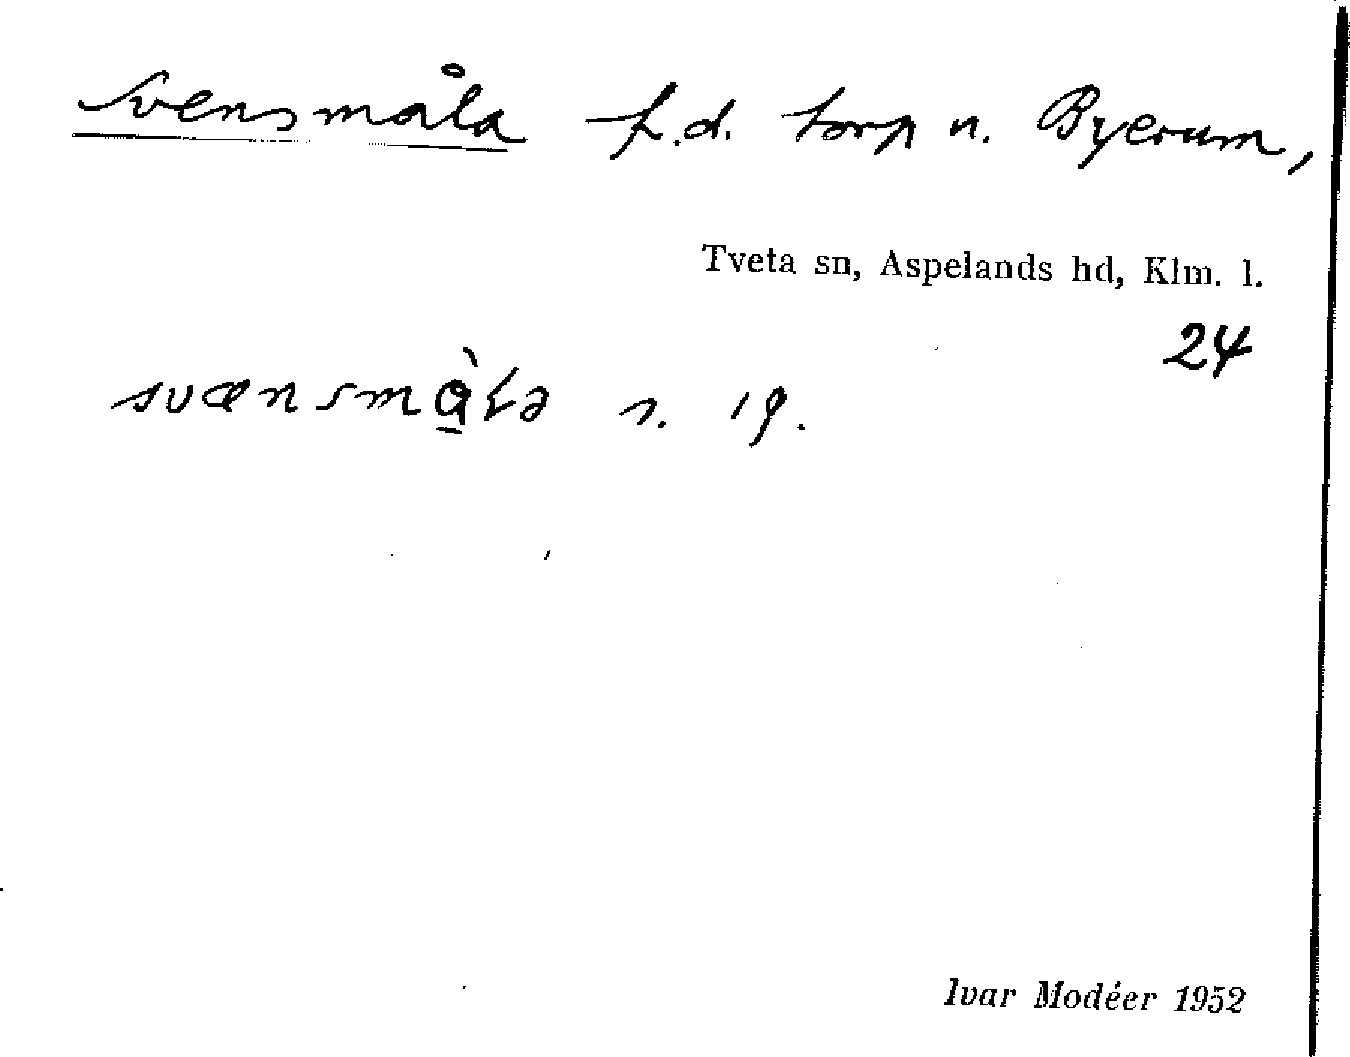 Svensmåla f.d. torp u. Byerum,
Tveta sn, Aspelands hd, Klm. l.
24
svænsmàla s. 19.
Ivar Modéer 1952